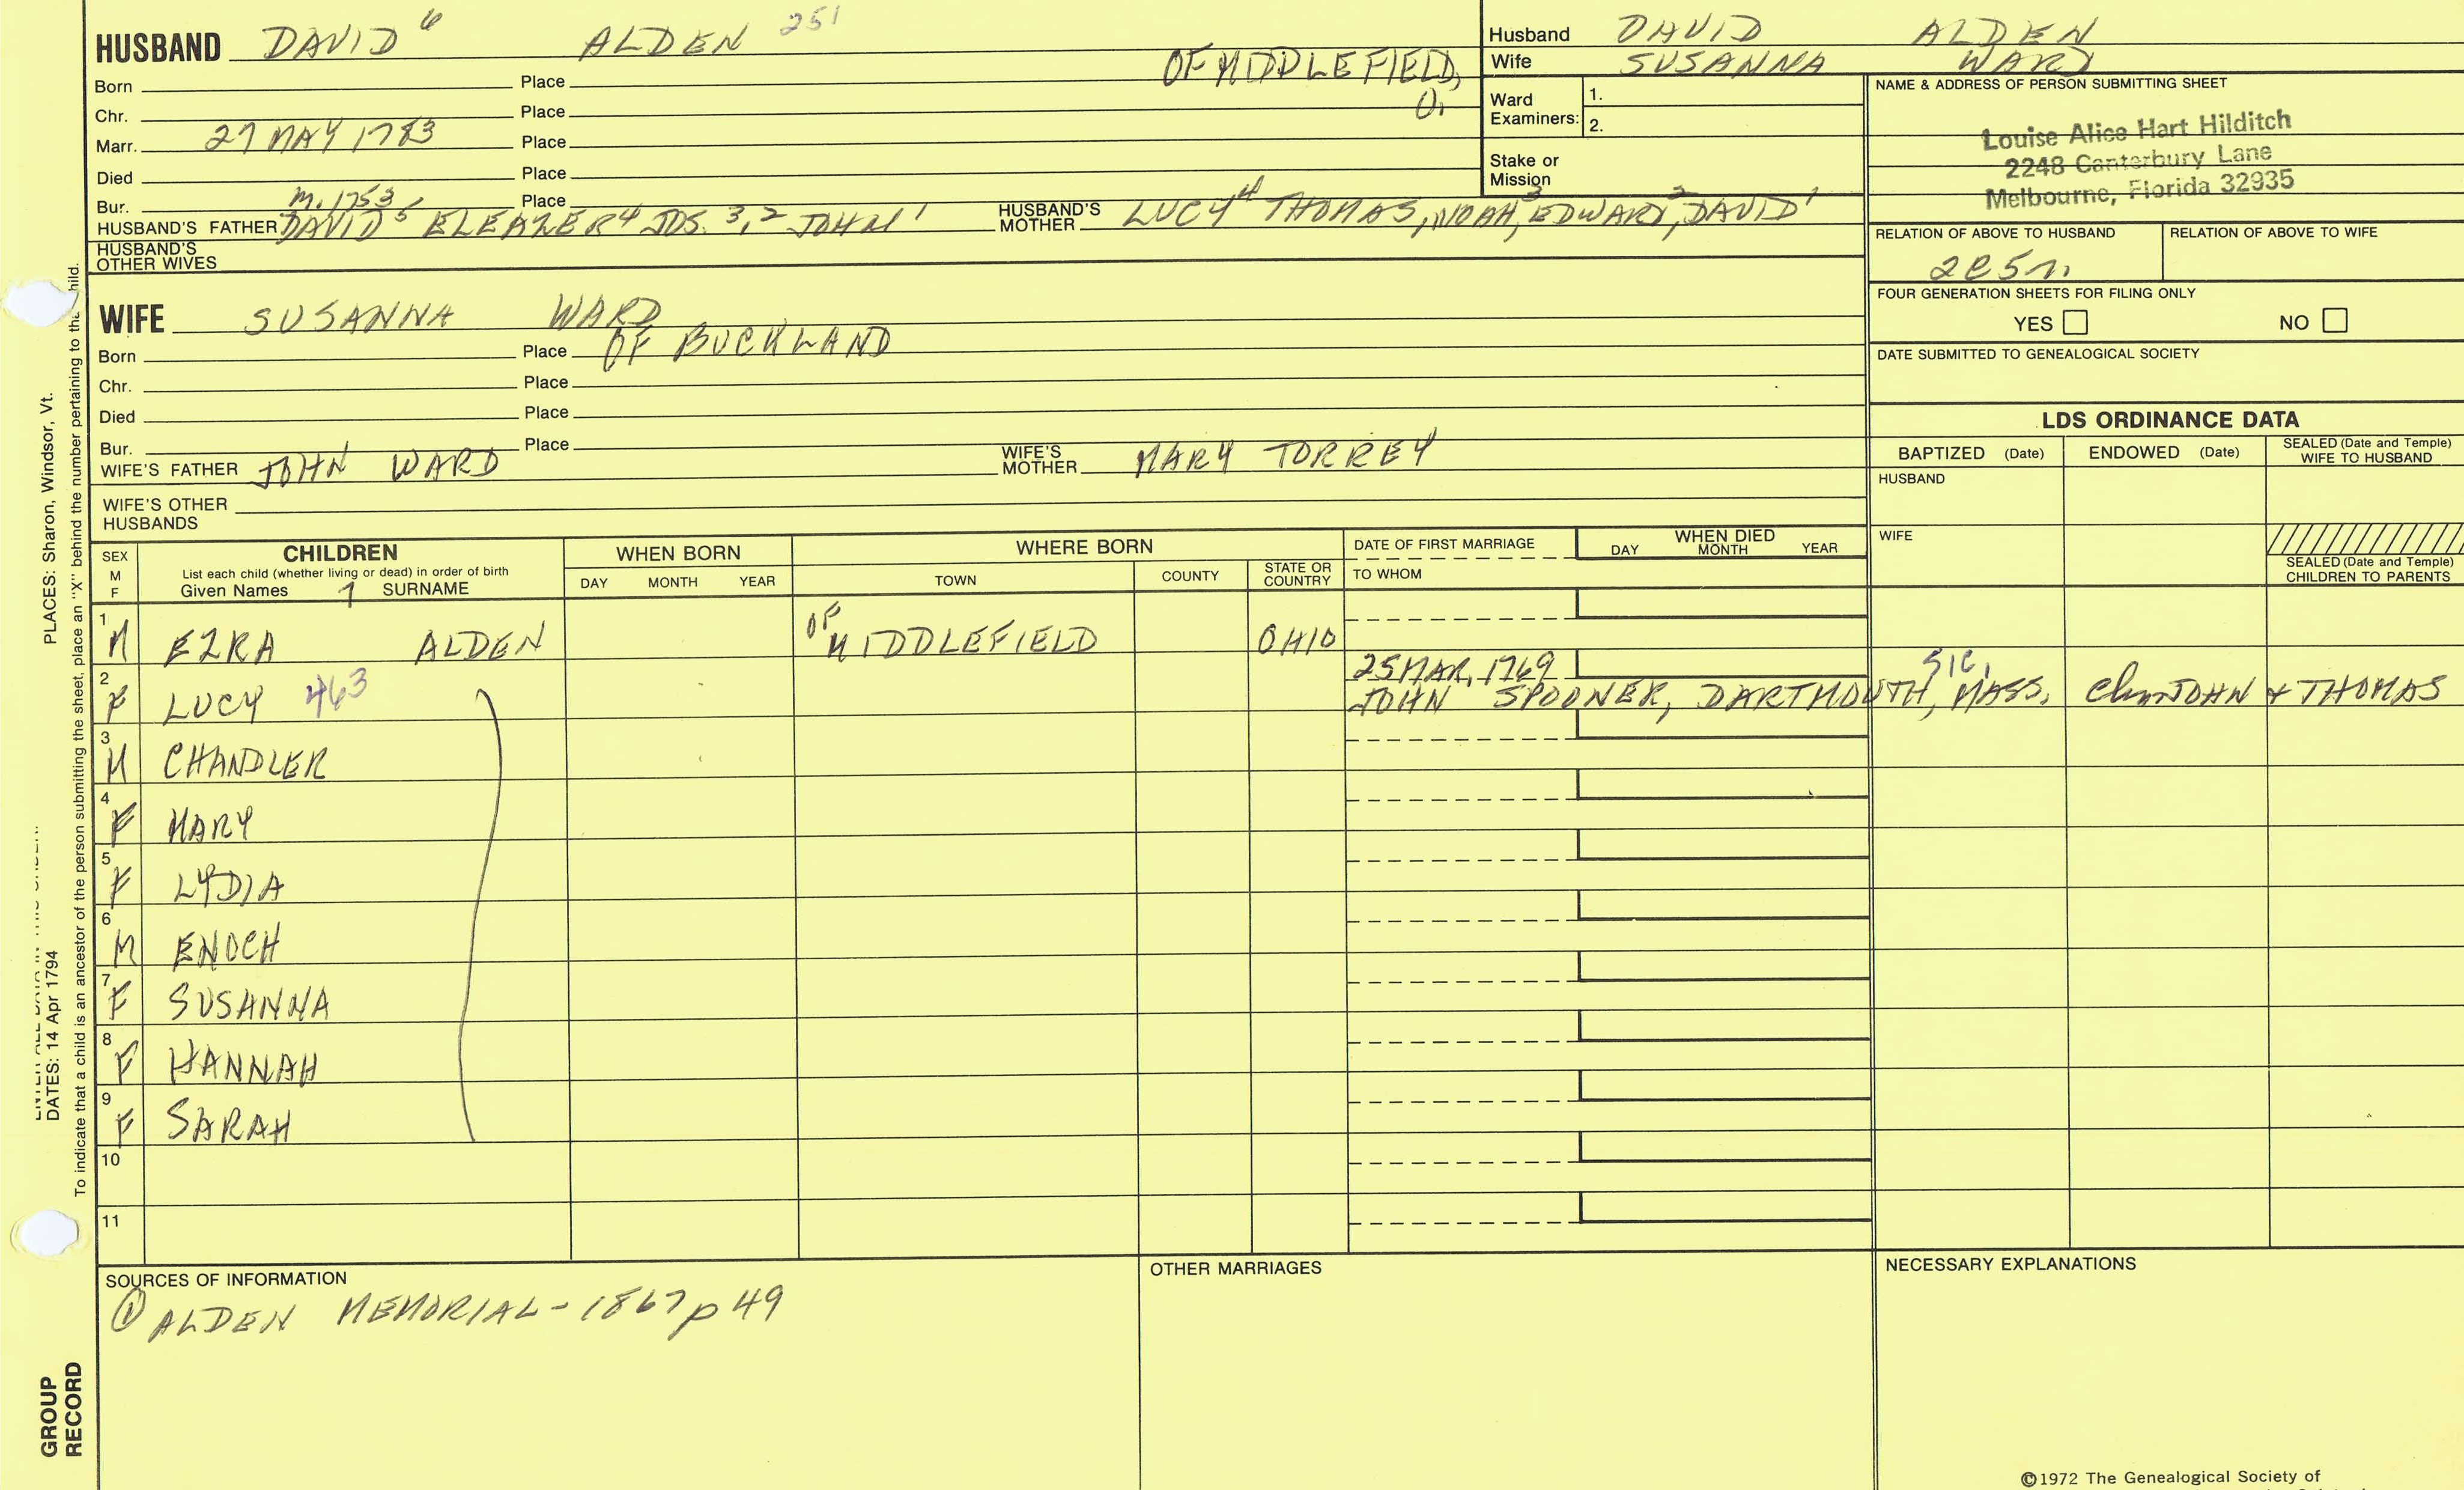 HUSBAND DAVID 6 ALDEN 251
OF MIDDLEFIELD,
O.
Born Place
Chr. Place
Marr. 27 MAY 1783 Place
Died Place
Bur. Place
M. 1753
HUSBAND'S FATHER DAVID 5 ELEAZER 4 JOS. 3,2 JOHN 1 HUSBAND'S MOTHER LUCY 4 THOMAS, NOAH, 3 EDWARD, 2 DAVID 1
HUSBAND'S OTHER WIVES
Husband DAVID ALDEN
Wife SUSANNA WARD
Ward Examiners: 1.
2.
Stake or Mission
NAME & ADDRESS OF PERSON SUBMITTING SHEET
Louise Alice Hart Hilditch
2248 Canterbury Lane
Melbourne, Florida 32935
RELATION OF ABOVE TO HUSBAND RELATION OF ABOVE TO WIFE
2C5r.
FOUR GENERATION SHEETS FOR FILING ONLY
YES NO
DATE SUBMITTED TO GENEALOGICAL SOCIETY
WIFE SUSANNA WARD
OF BUCKLAND
Born Place
Chr. Place
Died Place
Bur. Place
WIFE'S FATHER JOHN WARD WIFE'S MOTHER MARY TORREY
WIFE'S OTHER HUSBANDS
LDS ORDINANCE DATA
BAPTIZED (Date) ENDOWED (Date) SEALED (Date and Temple) WIFE TO HUSBAND
HUSBAND
WIFE
SEALED (Date and Temple) CHILDREN TO PARENTS
SEX M F
CHILDREN
List each child (whether living or dead) in order of birth
Given Names SURNAME
WHEN BORN
DAY MONTH YEAR
WHERE BORN
TOWN COUNTY STATE OR COUNTRY
DATE OF FIRST MARRIAGE
TO WHOM
WHEN DIED
DAY MONTH YEAR
1 M EZRA ALDEN OF MIDDLEFIELD OHIO
2 F LUCY 463 25 MAR, 1769
JOHN SPOONER, DARTMOUTH, MASS. SIC, JOHN & THOMAS
3 M CHANDLER
4 F MARY
5 F LYDIA
6 M ENOCH
7 F SUSANNA
8 F HANNAH
9 F SARAH
10
11
SOURCES OF INFORMATION
① ALDEN MEMORIAL - 1867 p 49
OTHER MARRIAGES
NECESSARY EXPLANATIONS
©1972 The Genealogical Society of
PLACES: Sharon, Windsor, Vt.
DATES: 14 Apr 1794
To indicate that a child is an ancestor of the person submitting the sheet, place an "X" behind the number pertaining to the child.
GROUP
RECORD